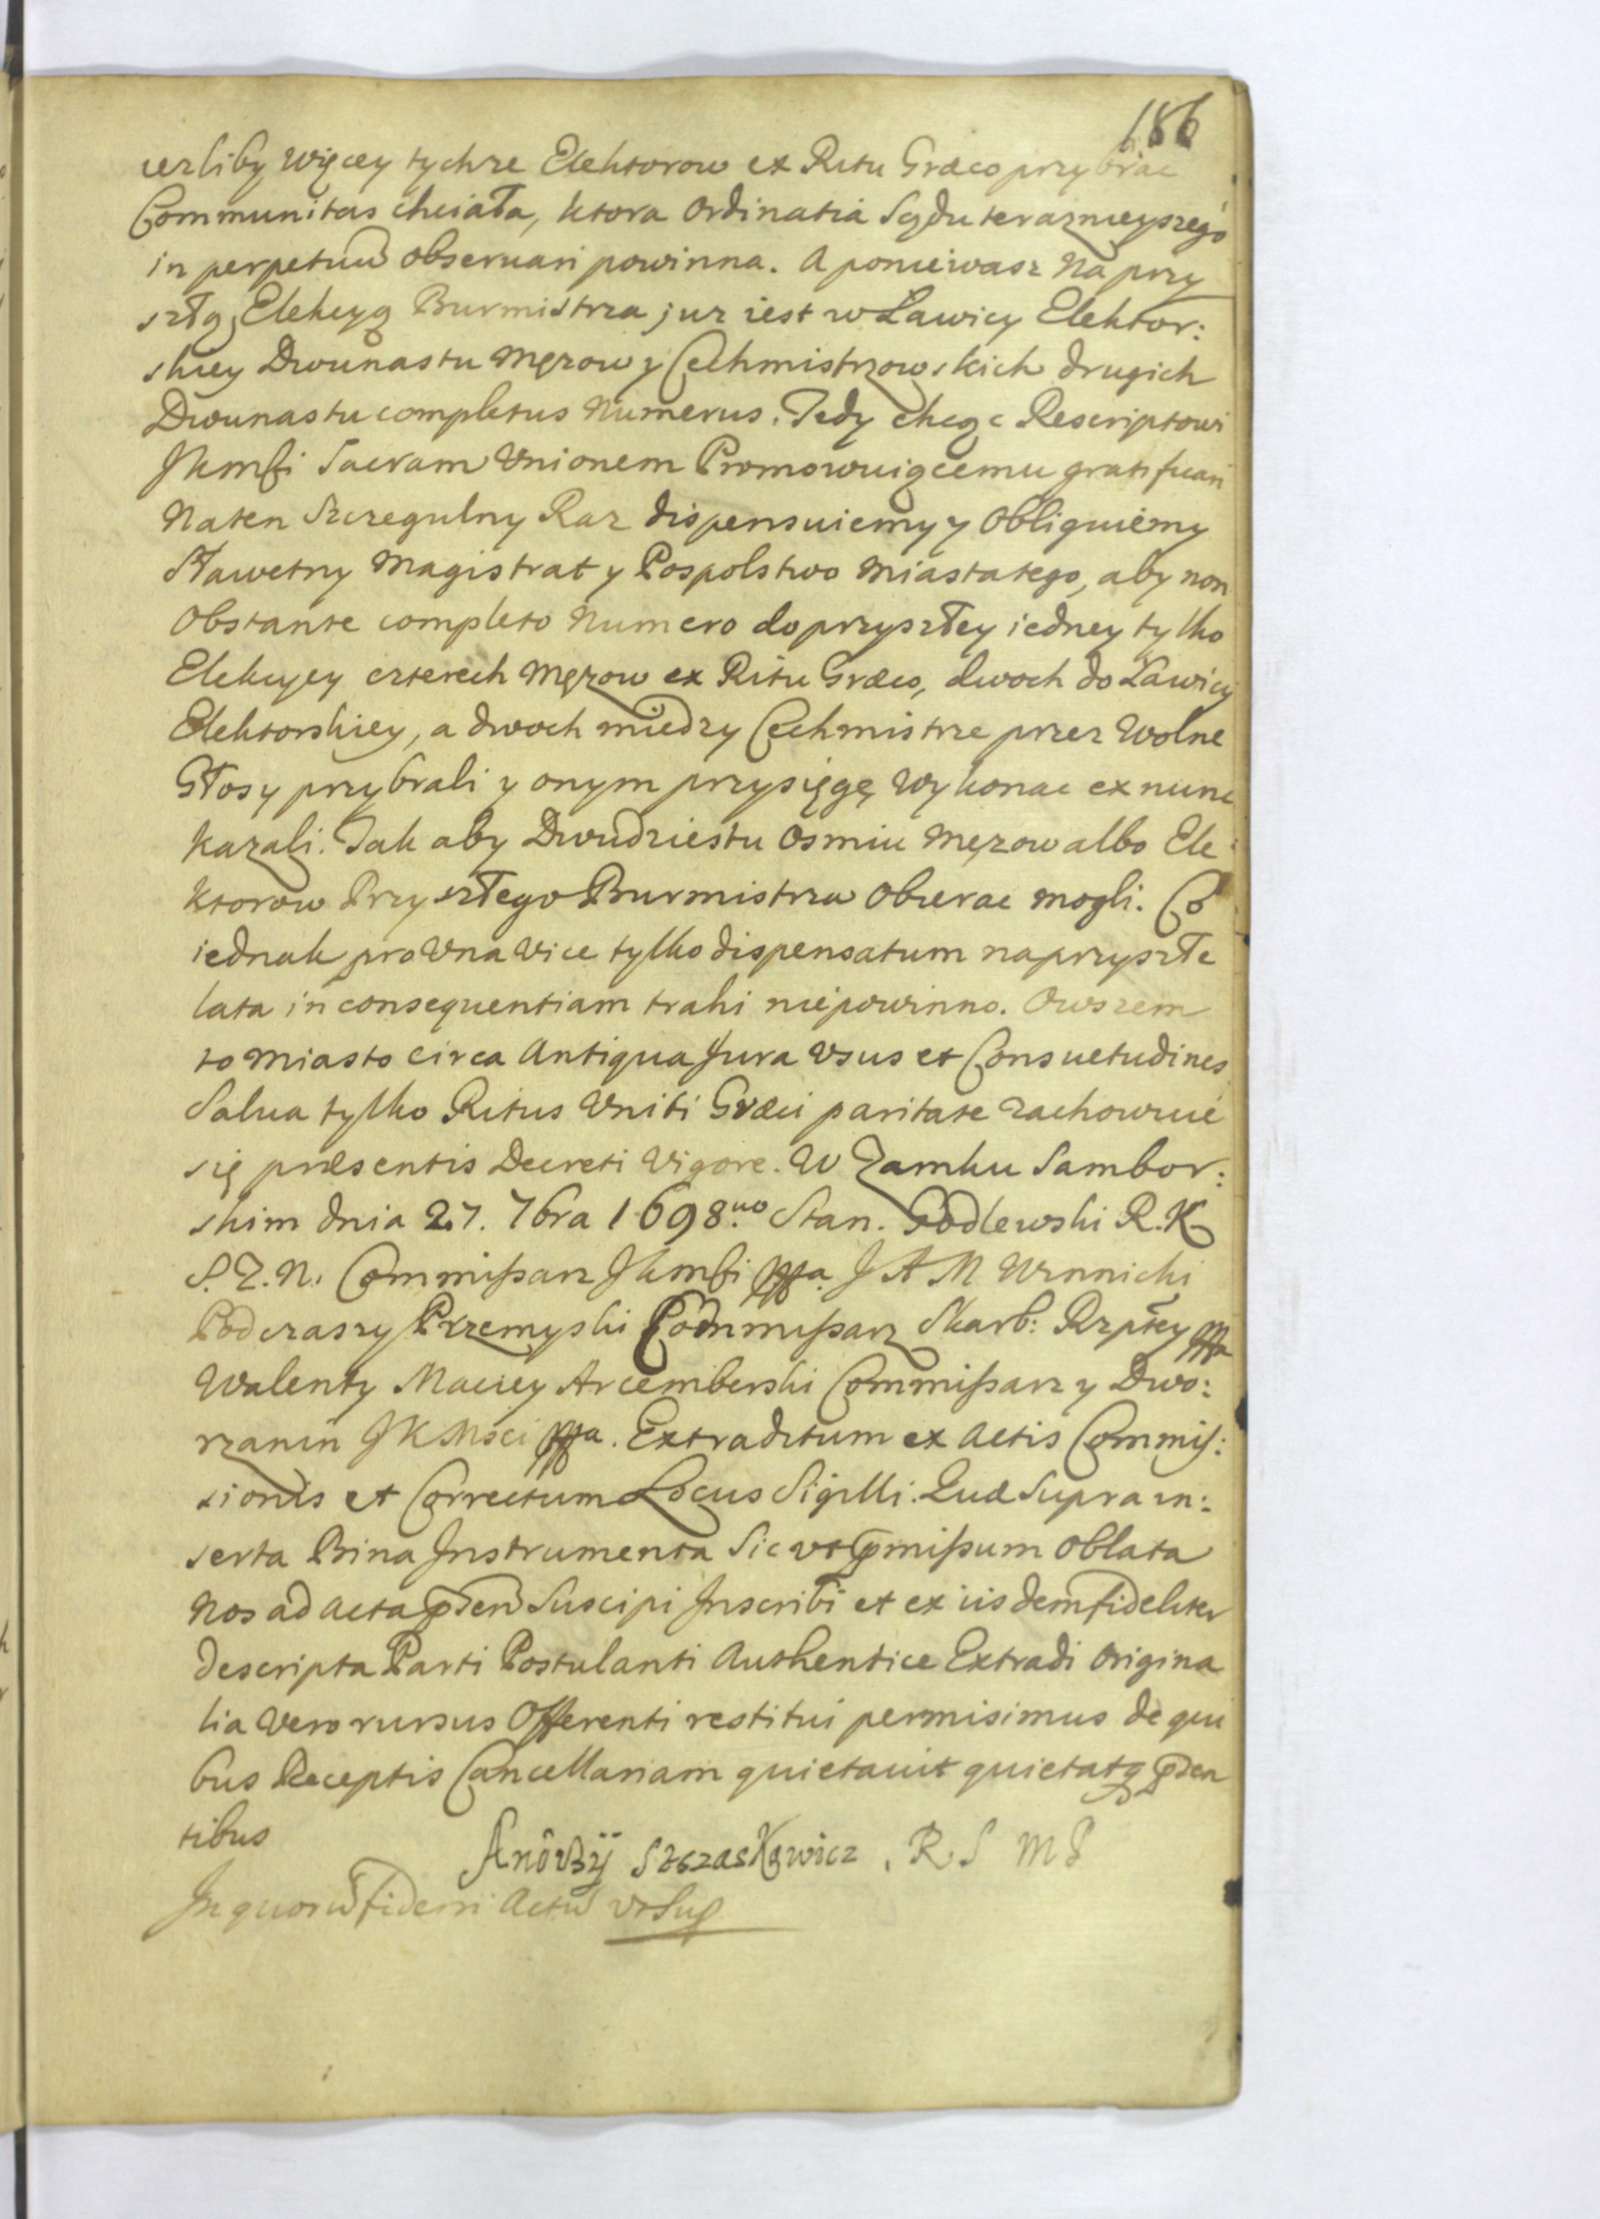 186
iezliby więcey tychze Elektorow ex Ritu Græco przybrac
Communitas chciała, ktora Ordinatia Sądu terazneyszego
in perpetuũ obseruari powinna. A poniewasz na przy
szłą Elekcyą Burmistrza juz iest w Ławicy Elektor:
skiey Dwunastu Męzow y Cechmistrzowskich drugich
Dwunastu completus Numerus. Tedy chcąc Rescriptowi
Jkmsći Sacram Vnionem Promowuiącemu gratificari
Naten Szczegulny Raz dispensuiemy y Obliguiemy
Sławetny Magistrat y Pospolstwo Miasta tego, aby non
Obstante completo Numero do przyszłey iedney tylko
Elekcyey czterech Męzow ex Ritu Græco, dwoch do Ławicy
Elektorskiey, a dwoch miedzy Cechmistrze przez Wolne
Głosy przybrali y onym przysięgę Wykonac ex nunc
kazali. Tak aby Dwudziestu Osmiu Męzow albo Ele:
ktorow Przyszłego Burmistrza Obierac mogli. Co
iednak pro Vna Vice tylko dispensatum na przyszłe
lata in consequentiam trahi niepowinno. Owszem
to Miasto circa Antiqua Jura Vsus et Consuetudines
Salua tylko Ritus Vniti Græci paritate zachowuie
się præsentis Decreti Vigore. W Zamku Sambor:
skim dnia 27. 7bra 1698.uo Stan. Godlewski R. K
S. Z. N. Commißarz Jkmsći mpp J A M Winnicki
Podczaszy Przemyski Commißarz Skarb: Rzpłey mpp
Walenty Maciey Arcemberski Commißarz y Dwo:
rzanin JKMsci mpp. Extraditum ex Actis Commis:
sionis et Correctum Locus Sigilli. Quæ Supra in:
serta Bina Instrumenta Sic vt præmißum Oblata
Nos ad Acta prñtia Suscipi Inscribi et ex iisdem fideliter
descripta Parti Postulanti Authentice Extradi Origina
lia Vero rursus Offerenti restitui permisimus de qui
bus Receptis Cancellariam quietauit quietatq præsen
tibus
Andrzÿ Stszaskowicz . R S M P
In quorũ fidem Actũ vt Sup